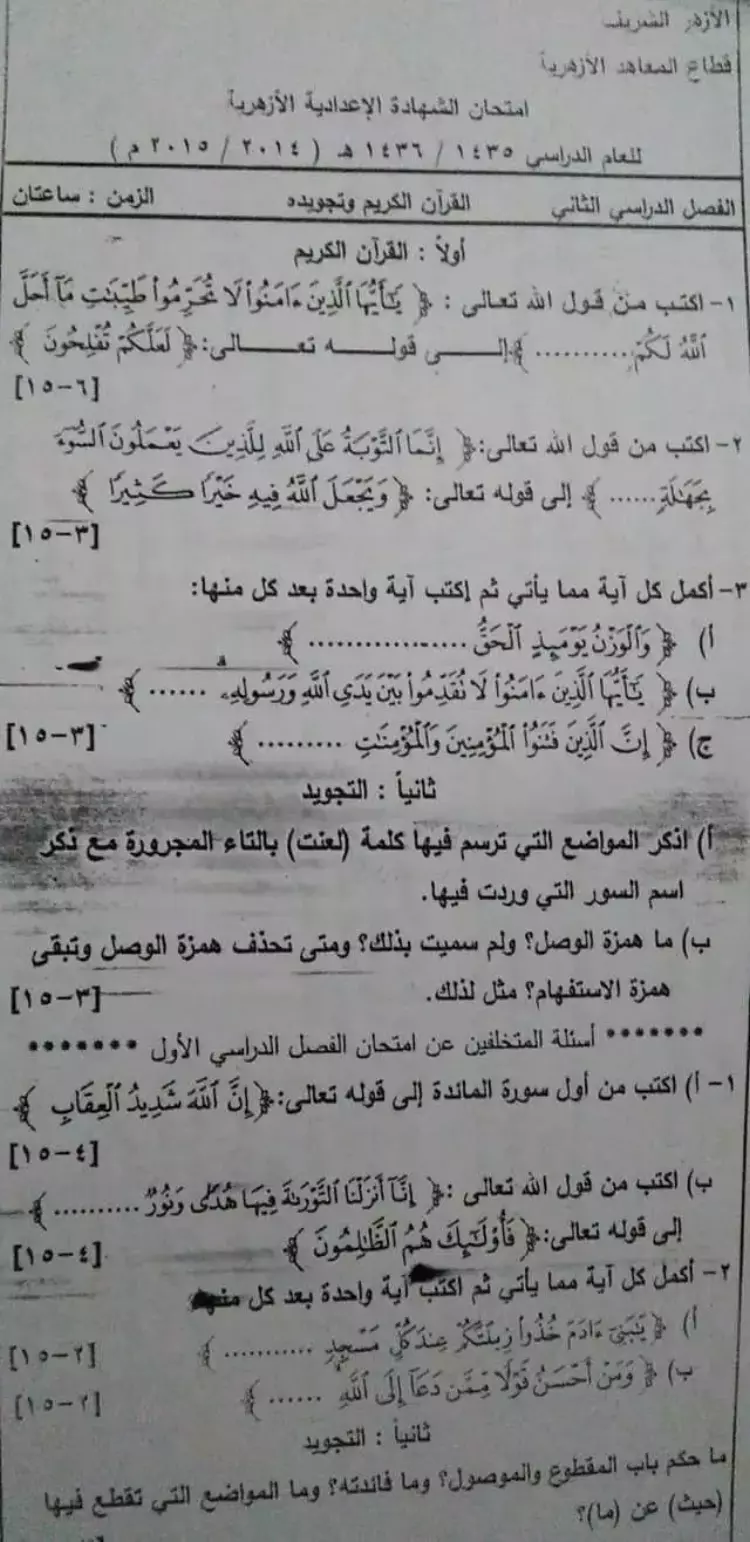 الأزهر الشريف
قطاع المعاهد الأزهرية
امتحان الشهادة الإعدادية الأزهرية
للعام الدراسي ١٤٣٥ / ١٤٣٦ هـ ( ٢٠١٤ / ٢٠١٥ م )
الفصل الدراسي الثاني القرآن الكريم وتجويده الزمن : ساعتان
أولاً : القرآن الكريم
١- اكتب من قول الله تعالى : ﴿ يَٰٓأَيُّهَا ٱلَّذِينَ ءَامَنُوا۟ لَا تُحَرِّمُوا۟ طَيِّبَٰتِ مَآ أَحَلَّ
ٱللَّهُ لَكُمْ........... ﴾ إلى قوله تعالى: ﴿ لَعَلَّكُمْ تُفْلِحُونَ ﴾
[٦-١٥]
٢- اكتب من قول الله تعالى: ﴿ إِنَّمَا ٱلتَّوْبَةُ عَلَى ٱللَّهِ لِلَّذِينَ يَعْمَلُونَ ٱلسُّوٓءَ
بِجَهَٰلَةٍ...... ﴾ إلى قوله تعالى: ﴿ وَيَجْعَلَ ٱللَّهُ فِيهِ خَيْرًا كَثِيرًا ﴾
[٣-١٥]
٣- أكمل كل آية مما يأتي ثم إكتب آية واحدة بعد كل منها:
أ) ﴿ وَٱلْوَزْنُ يَوْمَئِذٍ ٱلْحَقُّ .................. ﴾
ب) ﴿ يَٰٓأَيُّهَا ٱلَّذِينَ ءَامَنُوا۟ لَا تُقَدِّمُوا۟ بَيْنَ يَدَىِ ٱللَّهِ وَرَسُولِهِۦ ...... ﴾
ج) ﴿ إِنَّ ٱلَّذِينَ فَتَنُوا۟ ٱلْمُؤْمِنِينَ وَٱلْمُؤْمِنَٰتِ ......... ﴾ [٣-١٥]
ثانياً : التجويد
أ) اذكر المواضع التي ترسم فيها كلمة (لعنت) بالتاء المجرورة مع ذكر
اسم السور التي وردت فيها.
ب) ما همزة الوصل؟ ولم سميت بذلك؟ ومتى تحذف همزة الوصل وتبقى
همزة الاستفهام؟ مثل لذلك. [٣-١٥]
******* أسئلة المتخلفين عن امتحان الفصل الدراسي الأول *******
١- أ) اكتب من أول سورة المائدة إلى قوله تعالى: ﴿ إِنَّ ٱللَّهَ شَدِيدُ ٱلْعِقَابِ ﴾
[٤-١٥]
ب) اكتب من قول الله تعالى : ﴿ إِنَّآ أَنزَلْنَا ٱلتَّوْرَىٰةَ فِيهَا هُدًى وَنُورٌ .......... ﴾
إلى قوله تعالى: ﴿ فَأُو۟لَٰٓئِكَ هُمُ ٱلظَّٰلِمُونَ ﴾ [٤-١٥]
٢- أكمل كل آية مما يأتي ثم اكتب آية واحدة بعد كل منها
أ) ﴿ يَٰبَنِىٓ ءَادَمَ خُذُوا۟ زِينَتَكُمْ عِندَ كُلِّ مَسْجِدٍ ........... ﴾ [٢-١٥]
ب) ﴿ وَمَنْ أَحْسَنُ قَوْلًا مِّمَّن دَعَآ إِلَى ٱللَّهِ ...... ﴾ [٢-١٥]
ثانياً : التجويد
ما حكم باب المقطوع والموصول؟ وما فائدته؟ وما المواضع التي تقطع فيها
(حيث) عن (ما)؟